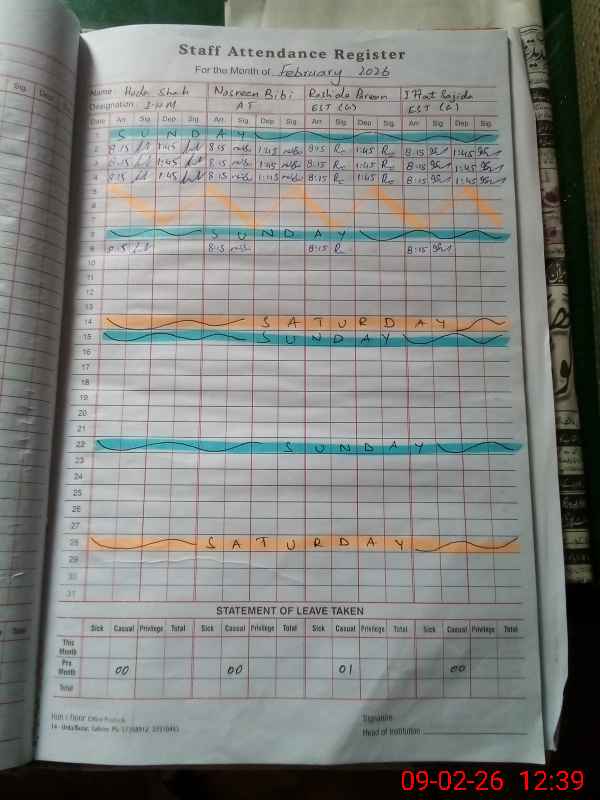 Staff Attendance Register
For the Month of February 2026
Name: Huda Shah Nasreen Bibi Rashida Parveen Iffat Sajida
Designation: AT EST (G) EST (G)
Date Arr Sig. Dep Sig. Arr Sig. Dep Sig. Arr Sig. Dep Sig. Arr Sig. Dep Sig.
SUNDAY
2 8:15 1:45 8:15 1:45 8:15 1:45 8:15 1:45
3 8:15 1:45 8:15 1:45 8:15 1:45 8:15 1:45
4 8:15 1:45 8:15 1:45 8:15 1:45 8:15 1:45
5
6
7
8 SUNDAY
9 8:15 8:15 8:15 8:15
10
11
12
13
14 SATURDAY
15 SUNDAY
16
17
18
19
20
21
22 SUNDAY
23
24
25
26
27
28 SATURDAY
29
30
31
STATEMENT OF LEAVE TAKEN
Sick Casual Privilege Total Sick Casual Privilege Total Sick Casual Privilege Total Sick Casual Privilege Total
This Month
Pre Month 00 00 01 00
Total
Signature
Head of Institution
09-02-26 12:39